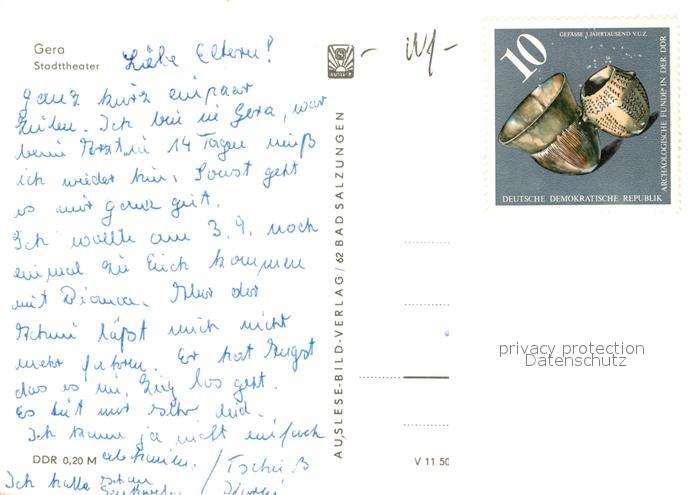 Gera
Stadttheater
Liebe Eltern!
ganz kurz ein paar
Zeilen. Ich bin in Gera, war
beim Arzt in 14 Tagen muß
ich wieder hin. Sonst geht
es mir ganz gut.
Ich wollte am 3.9. noch
einmal zu Euch kommen
mit Diana. Aber der
läßt mich nicht
mehr fahren. Er hat Angst
das es im Zug los geht.
Es tut mir sehr leid.
Ich kann ja nicht einfach
/ Tschüß
Ich
DDR 0,20 M
AUSLESE-BILD-VERLAG / 62 BAD SALZUNGEN
V 11 50
10
GEFÄSSE 1. JAHRTAUSEND V.U.Z.
ARCHÄOLOGISCHE FUNDE IN DER DDR
DEUTSCHE DEMOKRATISCHE REPUBLIK
privacy protection
Datenschutz